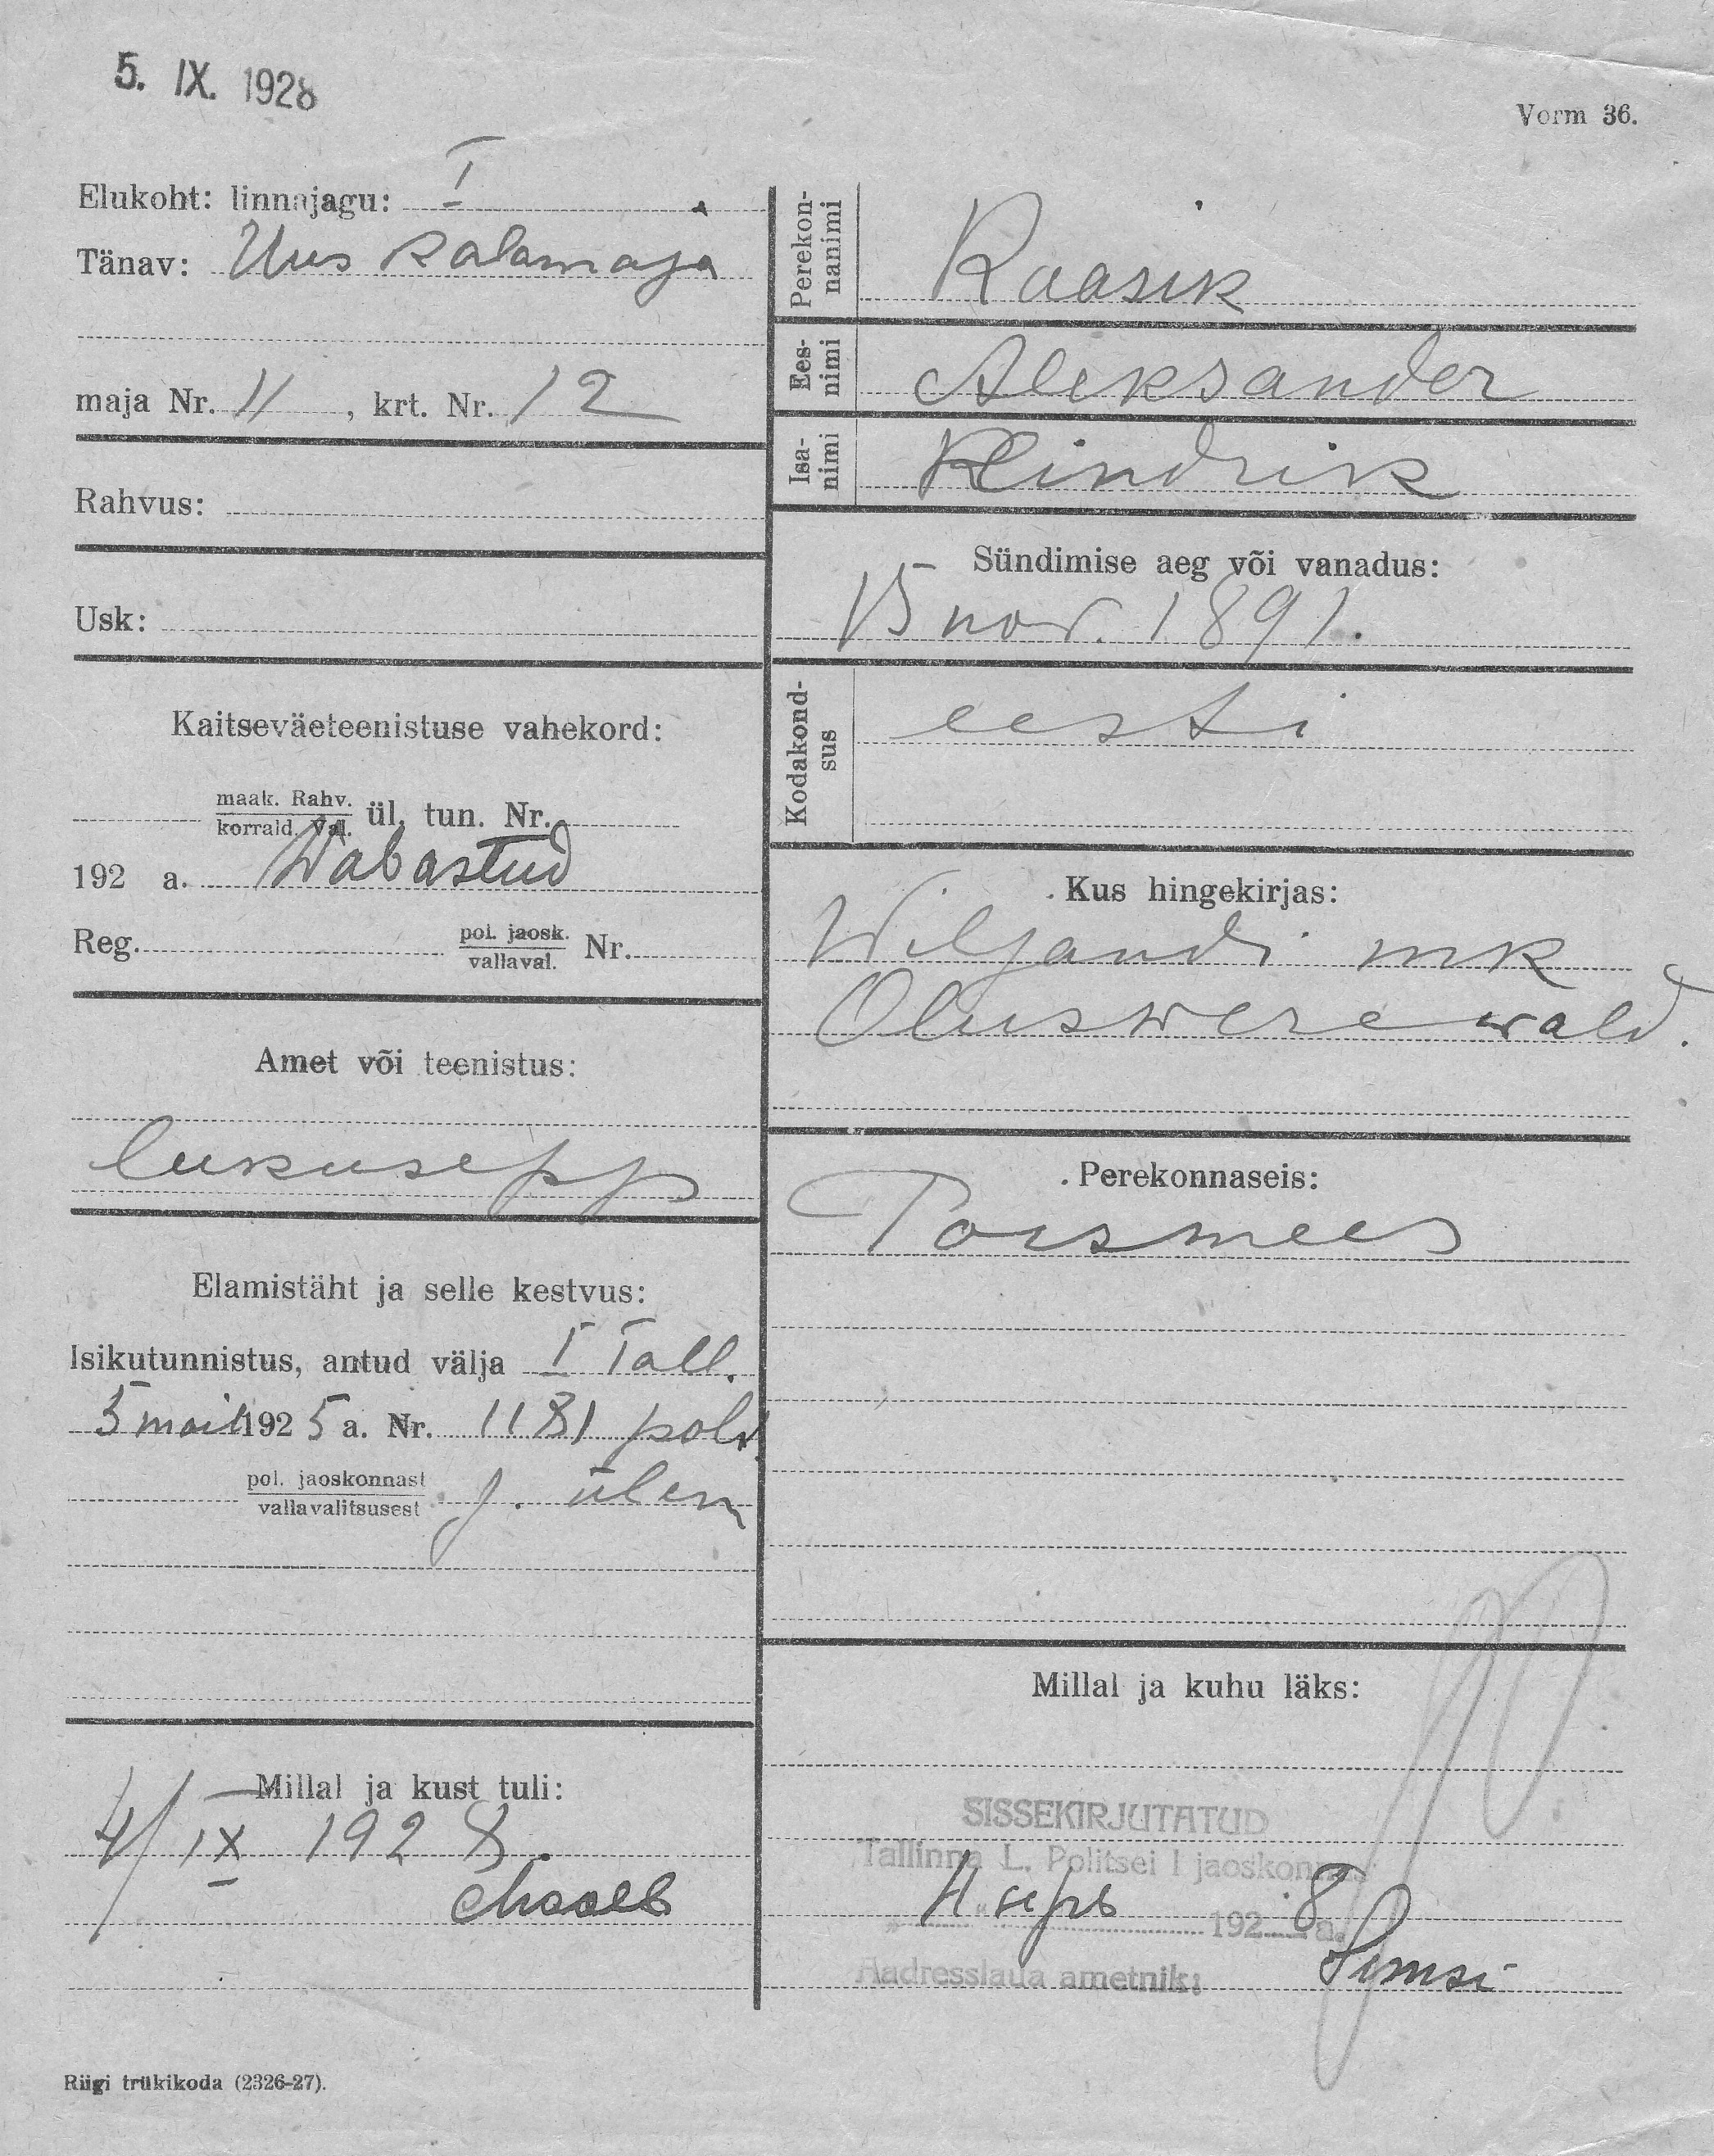 5. IX. 1928
Vorm 36.
Elukoht: linnajagu: I
Tänav: Uus Kalamaja
maja Nr. 11, krt. Nr. 12
Rahvus:
Usk:
Kaitseväeteenistuse vahekord:
maak. Rahv.
korrald. Val. ül. tun. Nr.
192 a. Wabastud
Reg. pol. jaosk. Nr.
vallaval.
Amet või teenistus:
lukusepp
Elamistäht ja selle kestvus:
Isikutunnistus, antud välja I Tall.
5 mail 1925 a. Nr. 1181 pol.
pol. jaoskonnast
vallavalitsusest j. ülem
Millal ja kust tuli:
4/IX 1928.
Perekon-
nanimi
Raasik
Ees-
nimi
Aleksander
Isa-
nimi
Hindrik
Sündimise aeg või vanadus:
15 nov. 1891.
Kodakond-
sus
eesti
Kus hingekirjas:
Wiljandi mk
Oluswere wald.
Perekonnaseis:
Poismees
Millal ja kuhu läks:
SISSEKIRJUTATUD
Tallinna L. Politsei I jaoskonnas
4. sept 1928 a.
Aadresslaua ametnik:
Riigi trükikoda (2326-27).